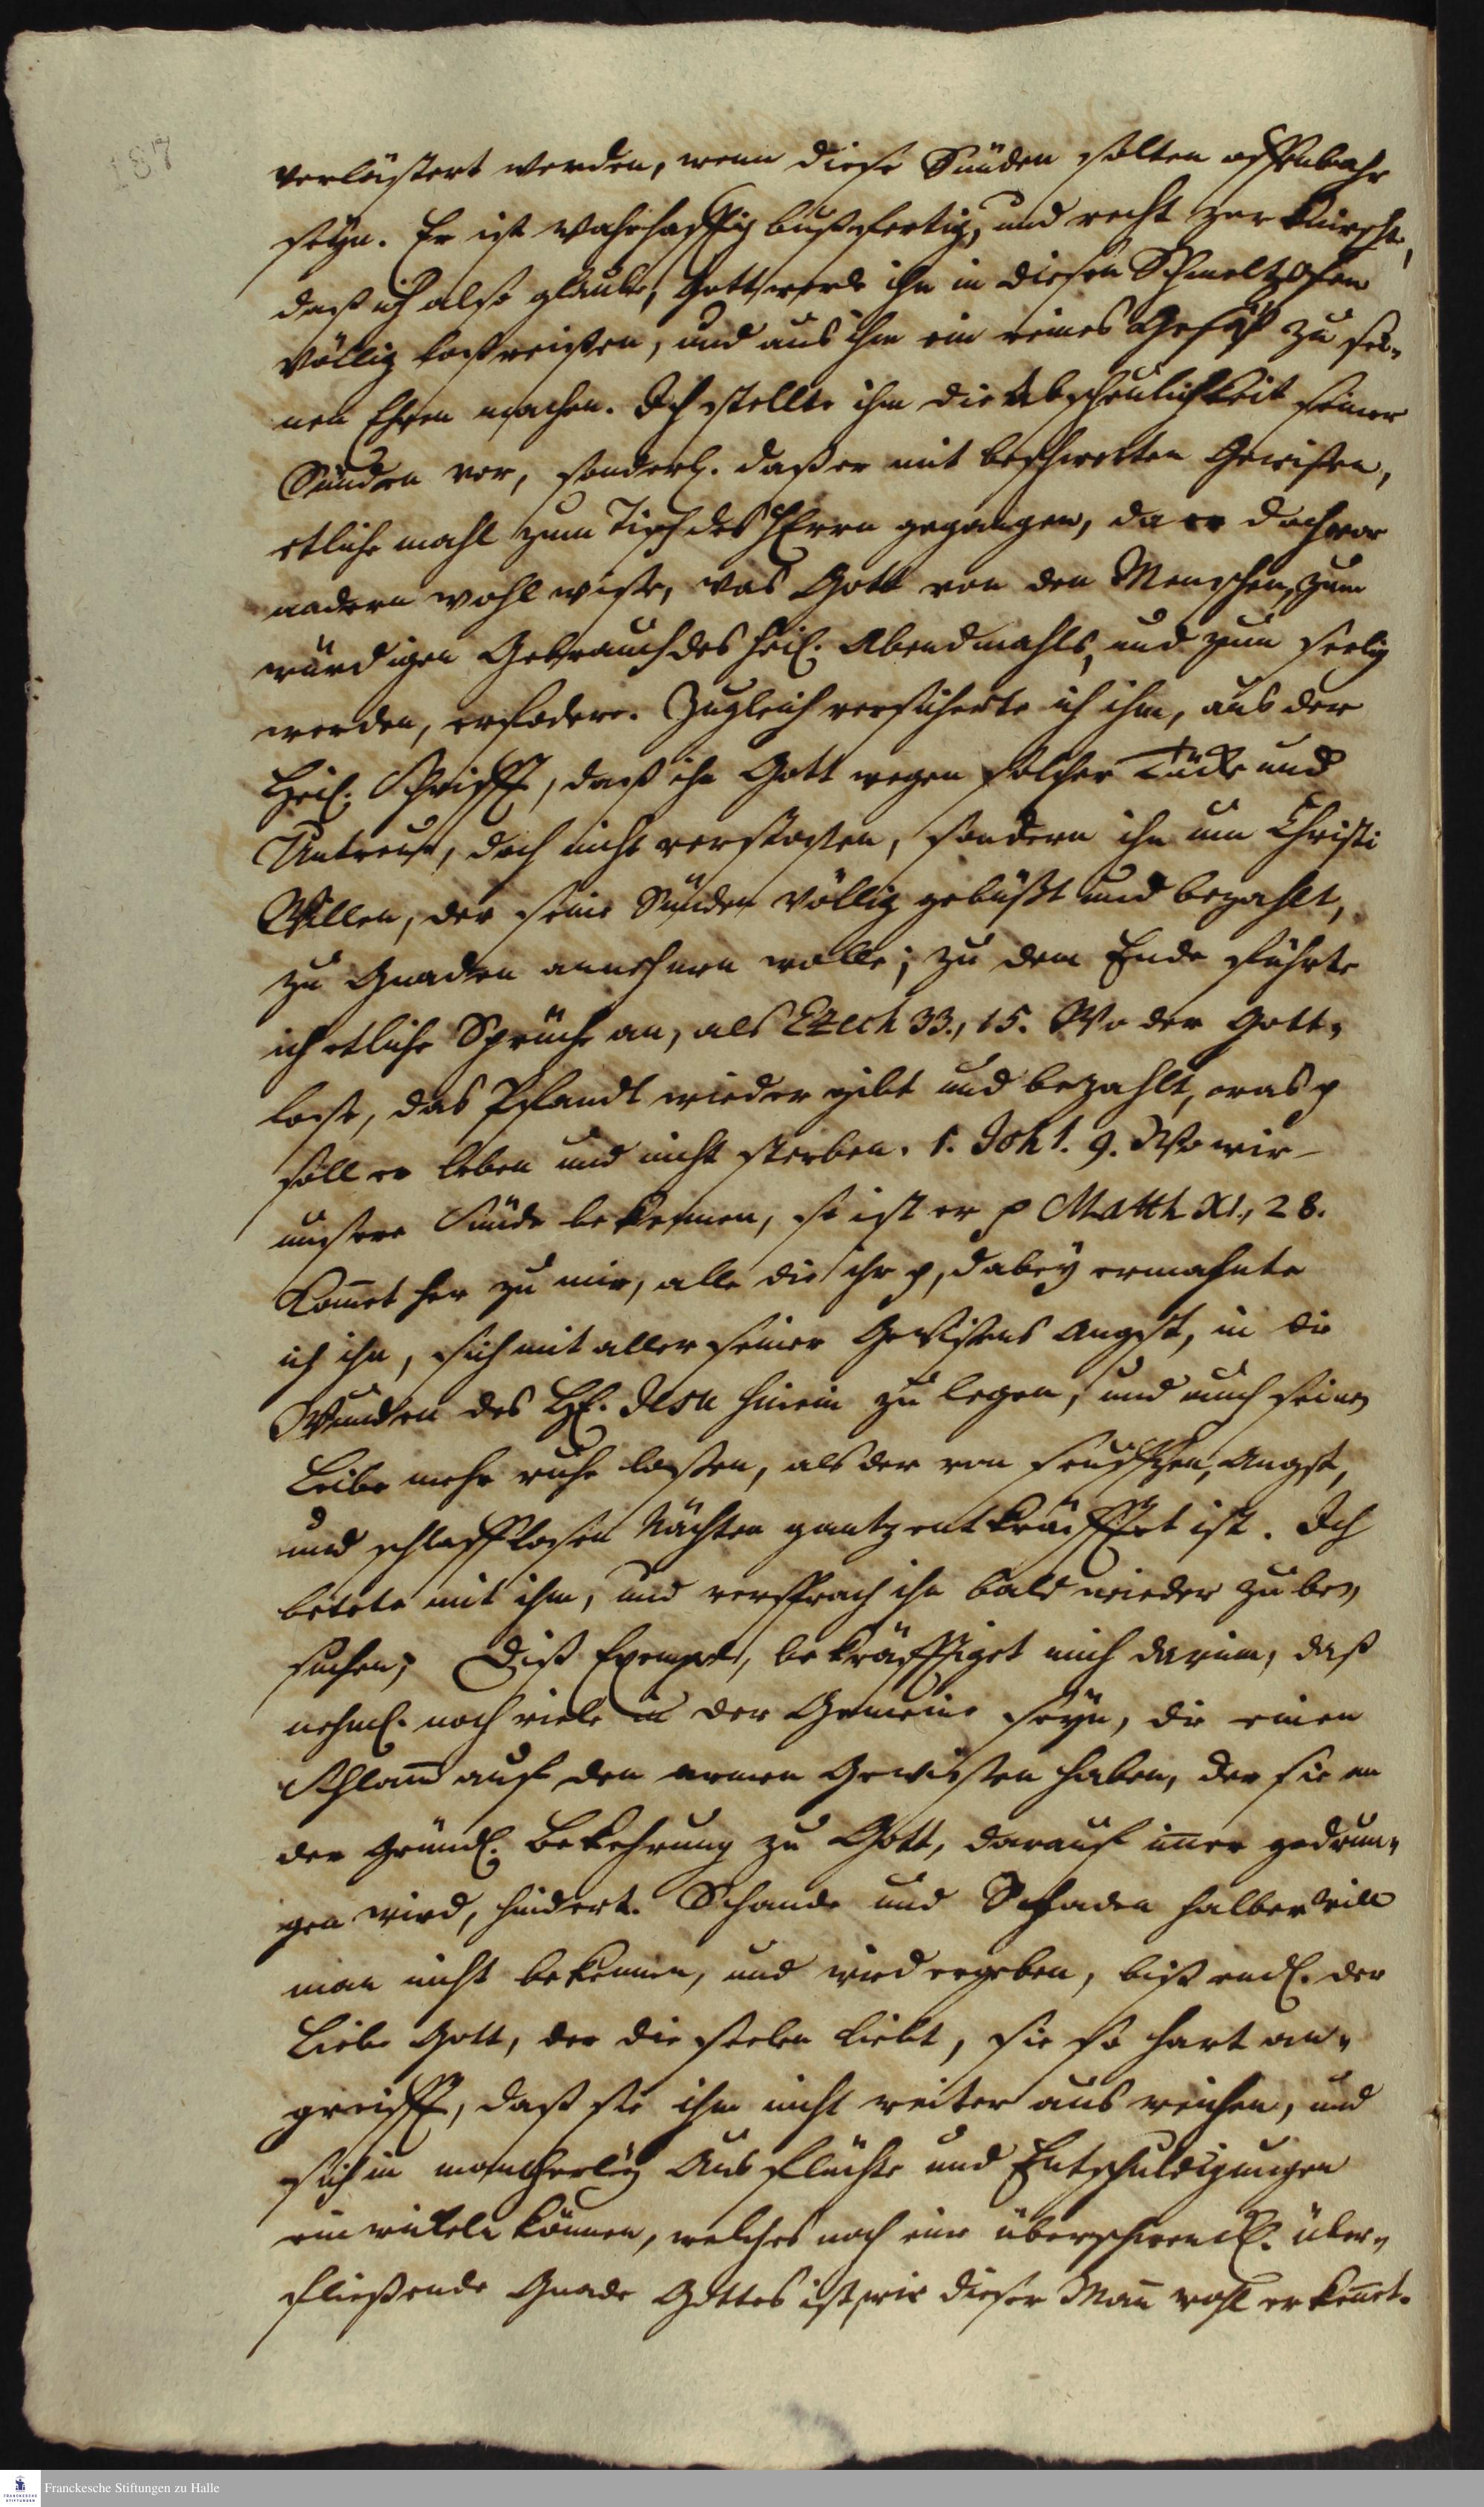 187
verlästert werden, wenn diese Sünden solten offenbahr
seyn. Er ist wahrhafftig bußfertig, und recht zerknirscht,
daß ich also glaube, Gott werde ihn in diesen Schmeltzofen
völlig loßreißen, und aus ihm ein reines Gefäß zu sei-
nen Ehren machen. Ich stellte ihm die Abscheulichkeit seiner
Sünden vor, sonderl. daß er mit beschwerten Gewißen,
etliche mahl zum Tisch des HErrn gegangen, da er doch vor
andern wohl wiße, was Gott von den Menschen, zum
würdigen Gebrauch des heil. Abendmahls, und zum seelig
werden, erfodere. Zugleich versicherte ich ihm, aus der
Heil. Schrifft, daß ihn Gott wegen solcher Tücke und
Untreue, doch nicht verstoßen, sondern ihn um Christi
Willen, der seine Sünden völlig gebüßt und bezahlt,
zu Gnaden annehmen wolle; zu dem Ende führte
ich etliche Sprüche an, als Ezech 33., 15. Wo der Gott-
lose, das Pfandt wieder gibt und bezahlt, was p
soll er leben und nicht sterben. 1. Joh 1. 9. So wir
unsere Sünde bekennen, so ist er p Matth XI., 28.
Kom̄et her zu mir, alle die ihr p, dabey ermahnte
ich ihn, sich mit aller seiner Gewißens Angst, in die
Wunden des HE. Jesu hinein zu legen, und auch seinen
Leibe mehr ruhe laßen, als der von seuffzen, Angst,
und schlafflosen Nächten gantz entkräfftet ist. Ich
betete mit ihm, und versprach ihn bald wieder zu be-
suchen; Diß Exempel, bekräfftiget mich darin, daß
nehml. noch viele in der Gemeine seyn, die einen
Schlam̄ auf den armen Gewißen haben, der sie an
der gründl. Bekehrung zu Gott, darauf im̄er gedrun-
gen wird, hindert. Schande und Schaden halber will
man nicht bekennen, und wird ergeben, biß endl. der
Liebe Gott, der die seelen liebt, sie so hart an-
greifft, daß sie ihm nicht weiter aus weichen, und
sich in mancherley Ausflüchte und Entschuldigungen
einwickeln können, welches noch eine überschwencl. über-
fließende Gnade Gottes ist, wie dieser Man̄ wohl erken̄et.
Franckesche Stiftungen zu Halle